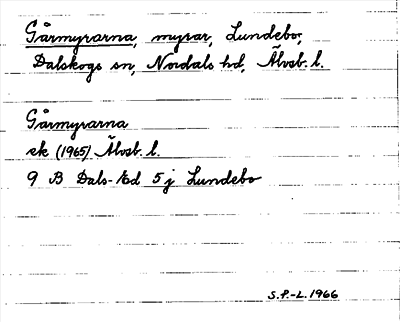 Gårmyrarna, myrar, Lundebo,
Dalskogs sn, Nordals hd, Älvsb. l.
Gårmyrarna
ek (1965) Älvsb. l.
9 B Dals-Ed 5 j Lundebo
S.P.-L. 1966